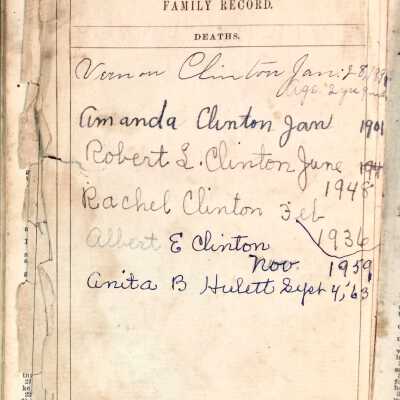 FAMILY RECORD.
DEATHS.
Vernon Clinton Jan. 28,
Age. 2 yrs
Amanda Clinton Jan 1901
Robert L. Clinton June
1948
Rachel Clinton Feb
1936
Albert E Clinton
Nov. 1959
Anita B Hulett Sept 4, '63